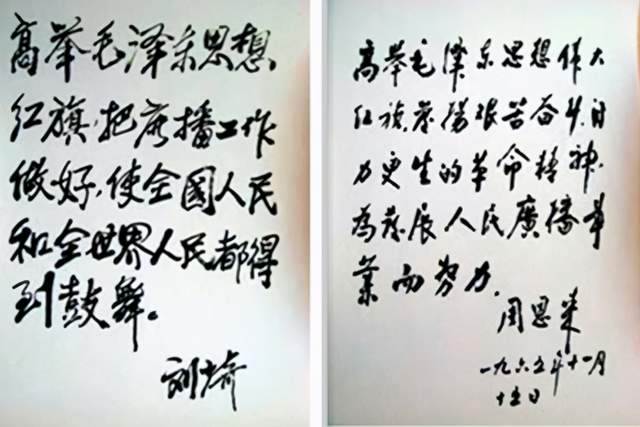 高举毛泽东思想
红旗,把广播工作
做好,使全國人民
和全世界人民都得
到鼓舞。
刘少奇
高举毛澤东思想伟大
红旗,發揚艰苦奋斗,自
力更生的革命精神,
為發展人民廣播事
業而努力.
周恩来
一九六五年十一月
十五日